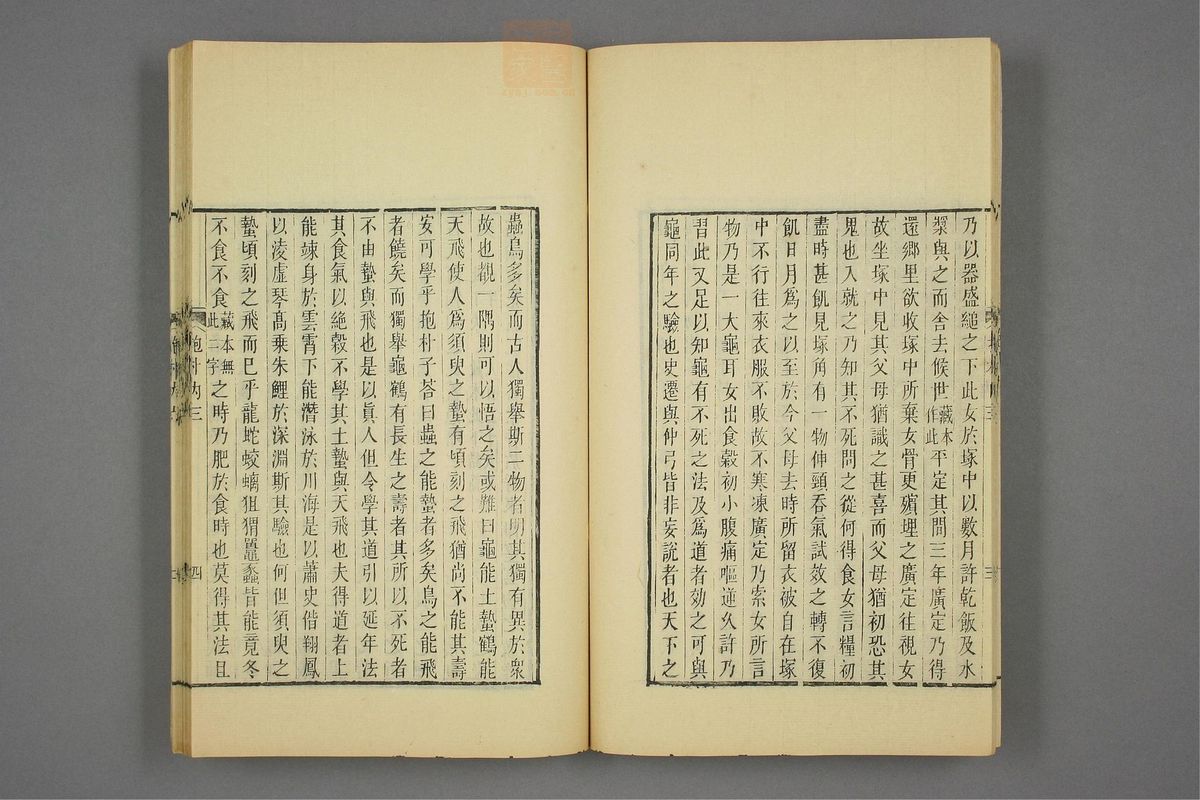 乃以器盛縋之下此女於塚中以數月許乾飯及水
漿與之而舍去候世藏本作此平定其間三年廣定乃得
還鄉里欲收塚中所棄女骨更殯埋之廣定往視女
故坐塚中見其父母猶識之甚喜而父母猶初恐其
鬼也入就之乃知其不死問之從何得食女言糧初
盡時甚飢見塚角有一物伸頸吞氣試效之轉不復
飢日月爲之以至於今父母去時所留衣被自在塚
中不行往來衣服不敗故不寒凍廣定乃索女所言
物乃是一大龜耳女出食穀初小腹痛嘔逆久許乃
習此又足以知龜有不死之法及爲道者効之可與
龜同年之驗也史遷與仲弓皆非妄說者也天下之
蟲鳥多矣而古人獨舉斯二物者明其獨有異於衆
故也觀一隅則可以悟之矣或難曰龜能土蟄鶴能
天飛使人爲須臾之蟄有頃刻之飛猶尚不能其壽
安可學乎抱朴子荅曰蟲之能蟄者多矣鳥之能飛
者饒矣而獨舉龜鶴有長生之壽者其所以不死者
不由蟄與飛也是以眞人但令學其道引以延年法
其食氣以絶穀不學其土蟄與天飛也夫得道者上
能竦身於雲霄下能潛泳於川海是以蕭史偕翔鳳
以淩虛琴高乗朱鯉於深淵斯其驗也何但須臾之
蟄頃刻之飛而已乎龍蛇蛟螭狙猬鼉蠡皆能竟冬
不食不食藏本無此二字之時乃肥於食時也莫得其法且
抱朴内三
四